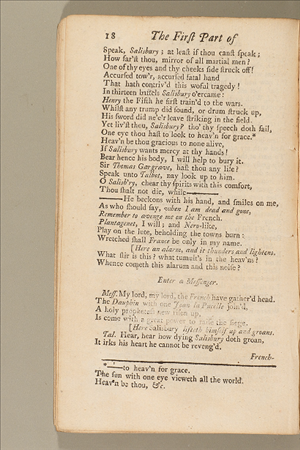 18 The Firſt Part of
Speak, Salisbury; at leaſt if thou canſt ſpeak;
How far'ſt thou, mirror of all martial men?
One of thy eyes and thy cheeks ſide ſtruck off!
Accurſed tow'r, accurſed fatal hand
That hath contriv'd this woful tragedy!
In thirteen battels Salisbury o'ercame:
Henry the Fifth he firſt train'd to the wars.
Whilſt any trump did ſound, or drum ſtruck up,
His ſword did ne'er leave ſtriking in the field.
Yet liv'ſt thou, Salisbury? tho' thy ſpeech doth fail,
One eye thou haſt to look to heav'n for grace.*
Heav'n be thou gracious to none alive,
If Salisbury wants mercy at thy hands!
Bear hence his body, I will help to bury it.
Sir Thomas Gargrave, haſt thou any life?
Speak unto Talbot, nay look up to him.
O Salisb'ry, chear thy ſpirits with this comfort,
Thou ſhalt not die, while——
——He beckons with his hand, and ſmiles on me,
As who ſhould ſay, when I am dead and gone,
Remember to avenge me on the French.
Plantagenet, I will; and Nero-like,
Play on the lute, beholding the towns burn:
Wretched ſhall France be only in my name.
[Here an alarm, and it thunders and lightens.
What ſtir is this? what tumult's in the heav'n?
Whence cometh this alarum and this noiſe?
Enter a Meſſenger.
Meſſ. My lord, my lord, the French have gather'd head.
The Dauphin with one Joan la Pucelle join'd,
A holy propheteſs new riſen up,
Is come with a great power to raiſe the ſiege.
[Here Salisbury lifteth himſelf up and groans.
Tal. Hear, hear how dying Salisbury doth groan,
It irks his heart he cannot be reveng'd.
French-
*——to heav'n for grace.
The ſun with one eye vieweth all the world.
Heav'n be thou, &c.